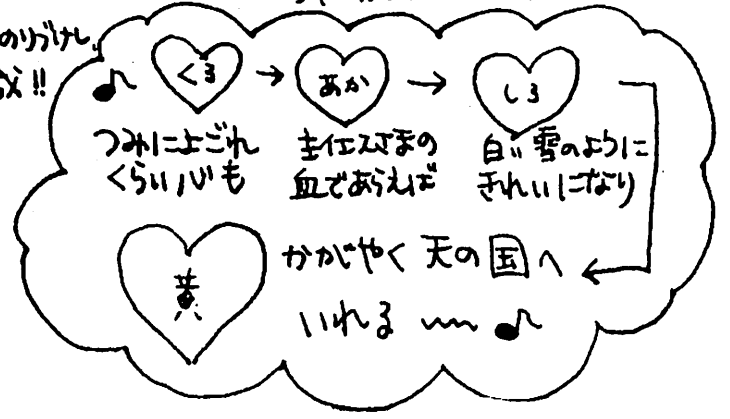 のりづけし、
!!
くろ
あか
しろ
つみによごれ
くらい心も
主イエスさまの
血であらえば
白い雪のように
きれいになり
黄
かがやく 天の国へ
いれる